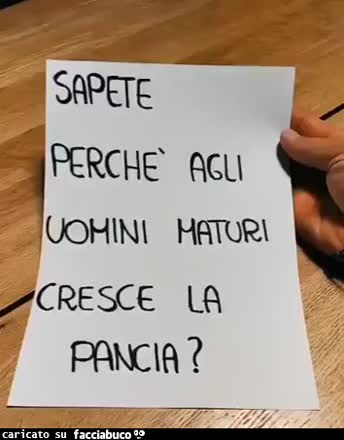 SAPETE
PERCHE' AGLI
UOMINI MATURI
CRESCE LA
PANCIA?
caricato su facciabuco